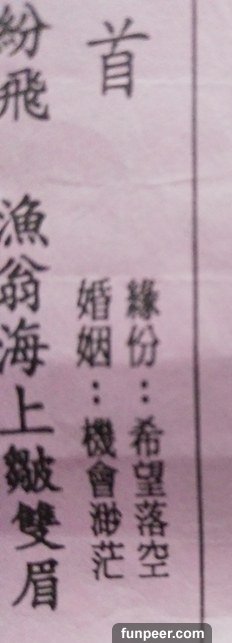 首
緣份：希望落空
婚姻：機會渺茫
紛飛　漁翁海上皺雙眉
funpeer.com